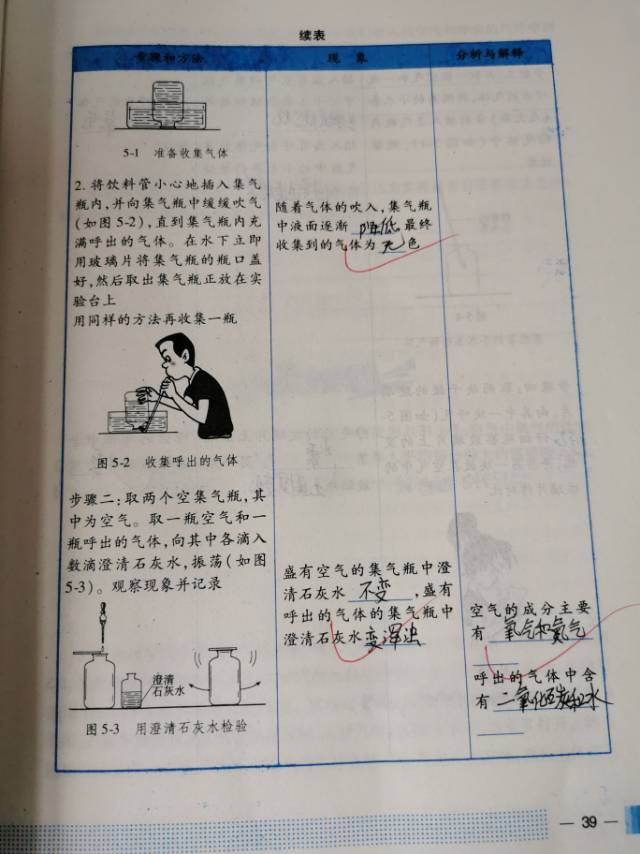 续表
步骤和方法
现 象
分析与解释
5-1 准备收集气体
2. 将饮料管小心地插入集气
瓶内,并向集气瓶中缓缓吹气
(如图 5-2),直到集气瓶内充
满呼出的气体。在水下立即
用玻璃片将集气瓶的瓶口盖
好,然后取出集气瓶正放在实
验台上
用同样的方法再收集一瓶
图 5-2 收集呼出的气体
步骤二:取两个空集气瓶,其
中为空气。取一瓶空气和一
瓶呼出的气体,向其中各滴入
数滴澄清石灰水,振荡(如图
5-3)。观察现象并记录
澄清
石灰水
图 5-3 用澄清石灰水检验
随着气体的吹入,集气瓶
中液面逐渐 降低 最终
收集到的气体为 无 色
盛有空气的集气瓶中澄
清石灰水 不变 ,盛有
呼出的气体的集气瓶中
澄清石灰水变浑浊
空气的成分主要
有 氧气和氮气
呼出的气体中含
有 二氧化碳和水
— 39 —